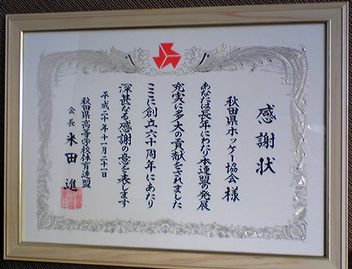 感謝状
秋田県ホッケー協会 様
あなたは長年にわたり本連盟の発展
充実に多大の貢献をされました
ここに創立六十周年にあたり
深甚なる感謝の意を表します
平成二十年十一月二十一日
秋田県高等学校体育連盟
会長 米田 進